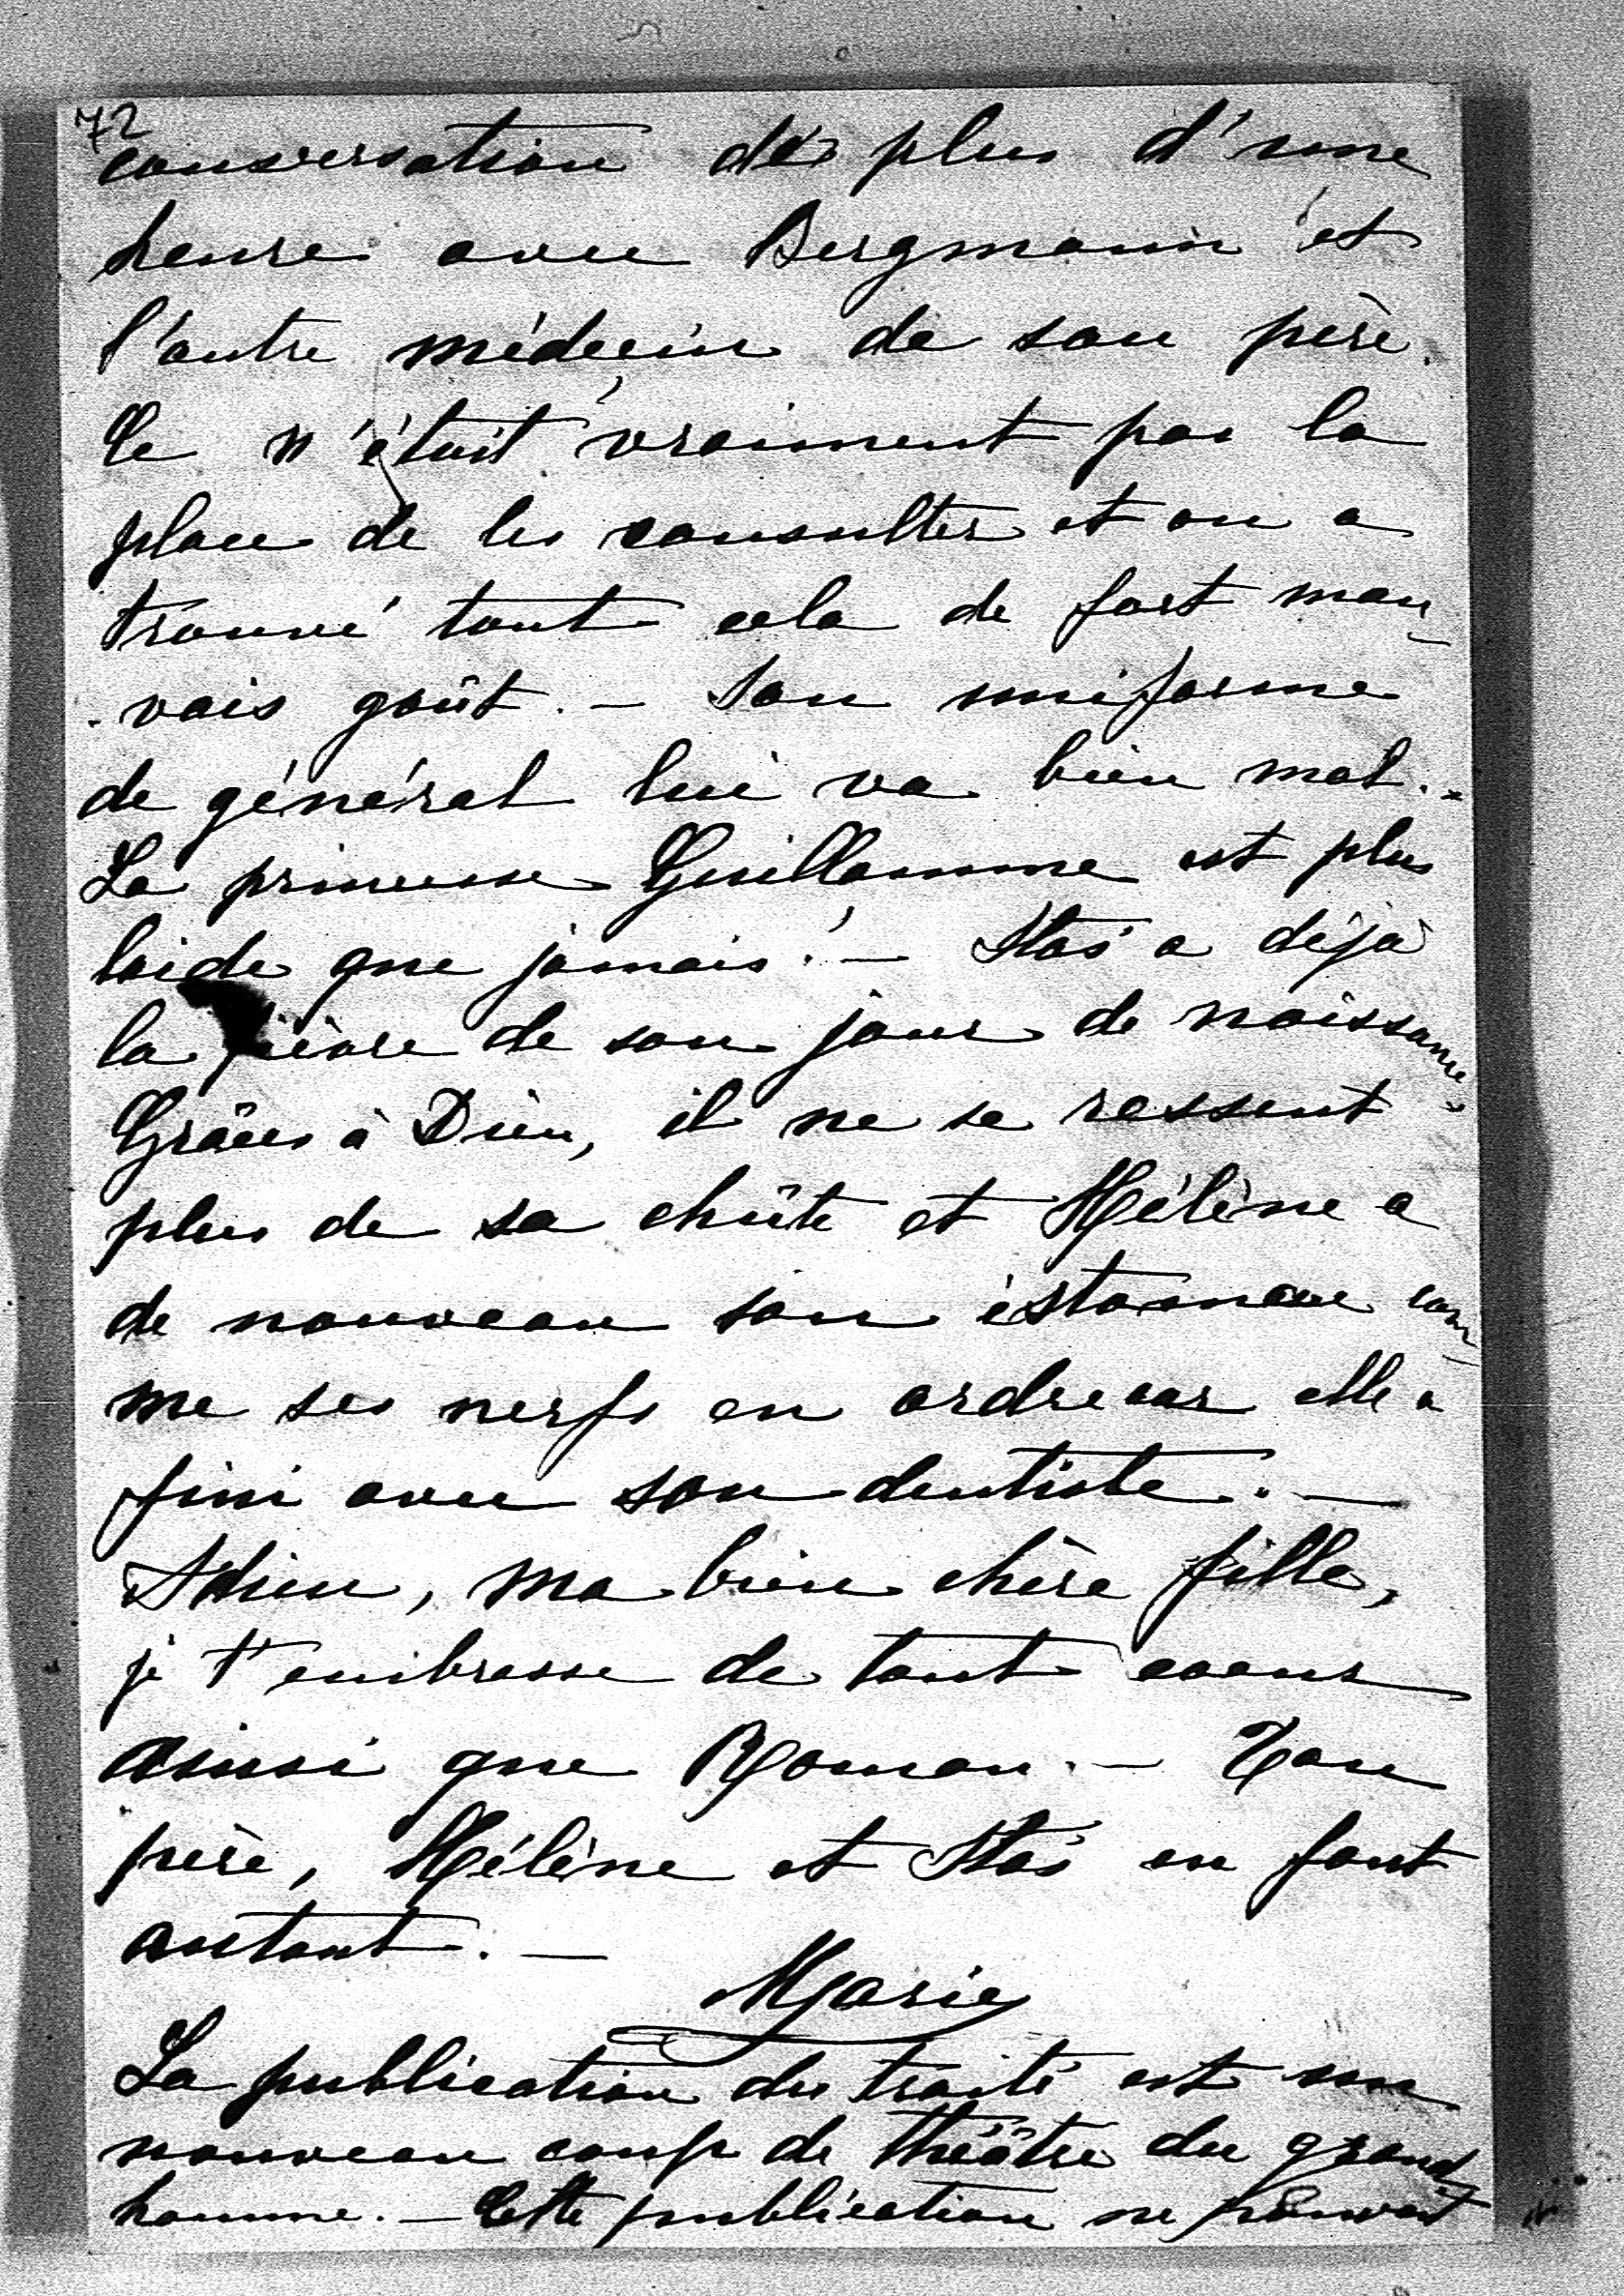 72
conversation de plus d'une
heure avec Bergmann et
l'autre médecin de son père.
Ce n'était vraiment pas la
place de les consulter et on a
trouvé tout cela de fort mau-
vais goût. - Son uniforme
de général lui va bien mal. -
La princesse Guillaume est plus
laide que jamais! - Staś a déjà
la fièvre de son jour de naissance.
Grâces à Dieu, il ne se ressent
plus de sa chûte et Hélène a
de nouveau son éstomac com-
me ses nerfs en ordre car elle a
fini avec son dentiste. -
Adieu, ma bien chère fille,
je t'embrasse de tout coeur
ainsi que Roman. - Ton
père, Hélène et Staś en font
autant. -
Marie
La publication du traité est un
nouveau coup de théâtre du grand
homme. - Cette publication ne pouvait